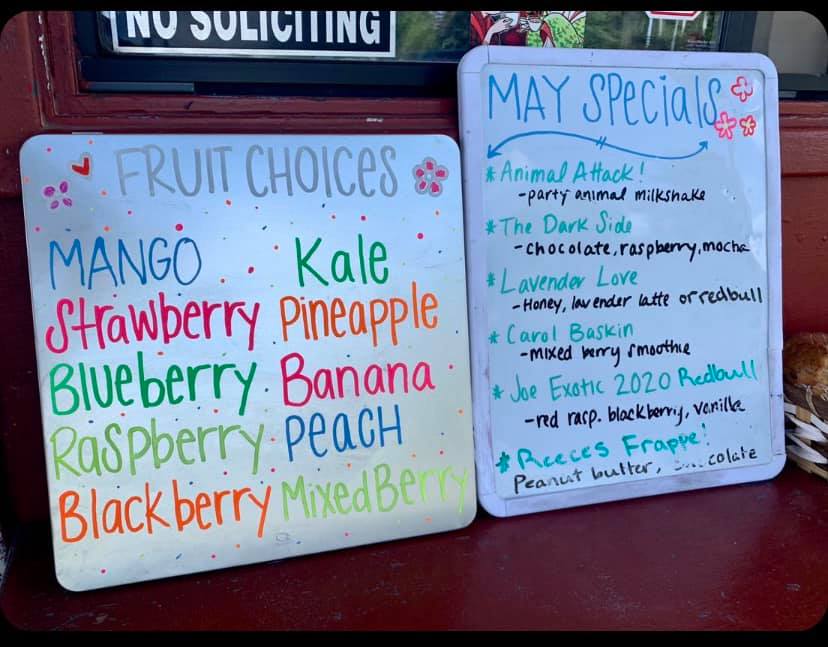 NO SOLICITING
FRUIT CHOICES
MANGO
Strawberry
Blueberry
Raspberry
Blackberry
Kale
Pineapple
Banana
PEACH
Mixed Berry
MAY SPecials
*Animal Attack!
-party animal milkshake
*The Dark Side
-chocolate, raspberry, mocha
*Lavender Love
-Honey, lavender latte or redbull
*Carol Baskin
-Mixed berry smoothie
*Joe Exotic 2020 Redbull
-red rasp. blackberry, vanilla
*Reeces Frappe!
Peanut butter,